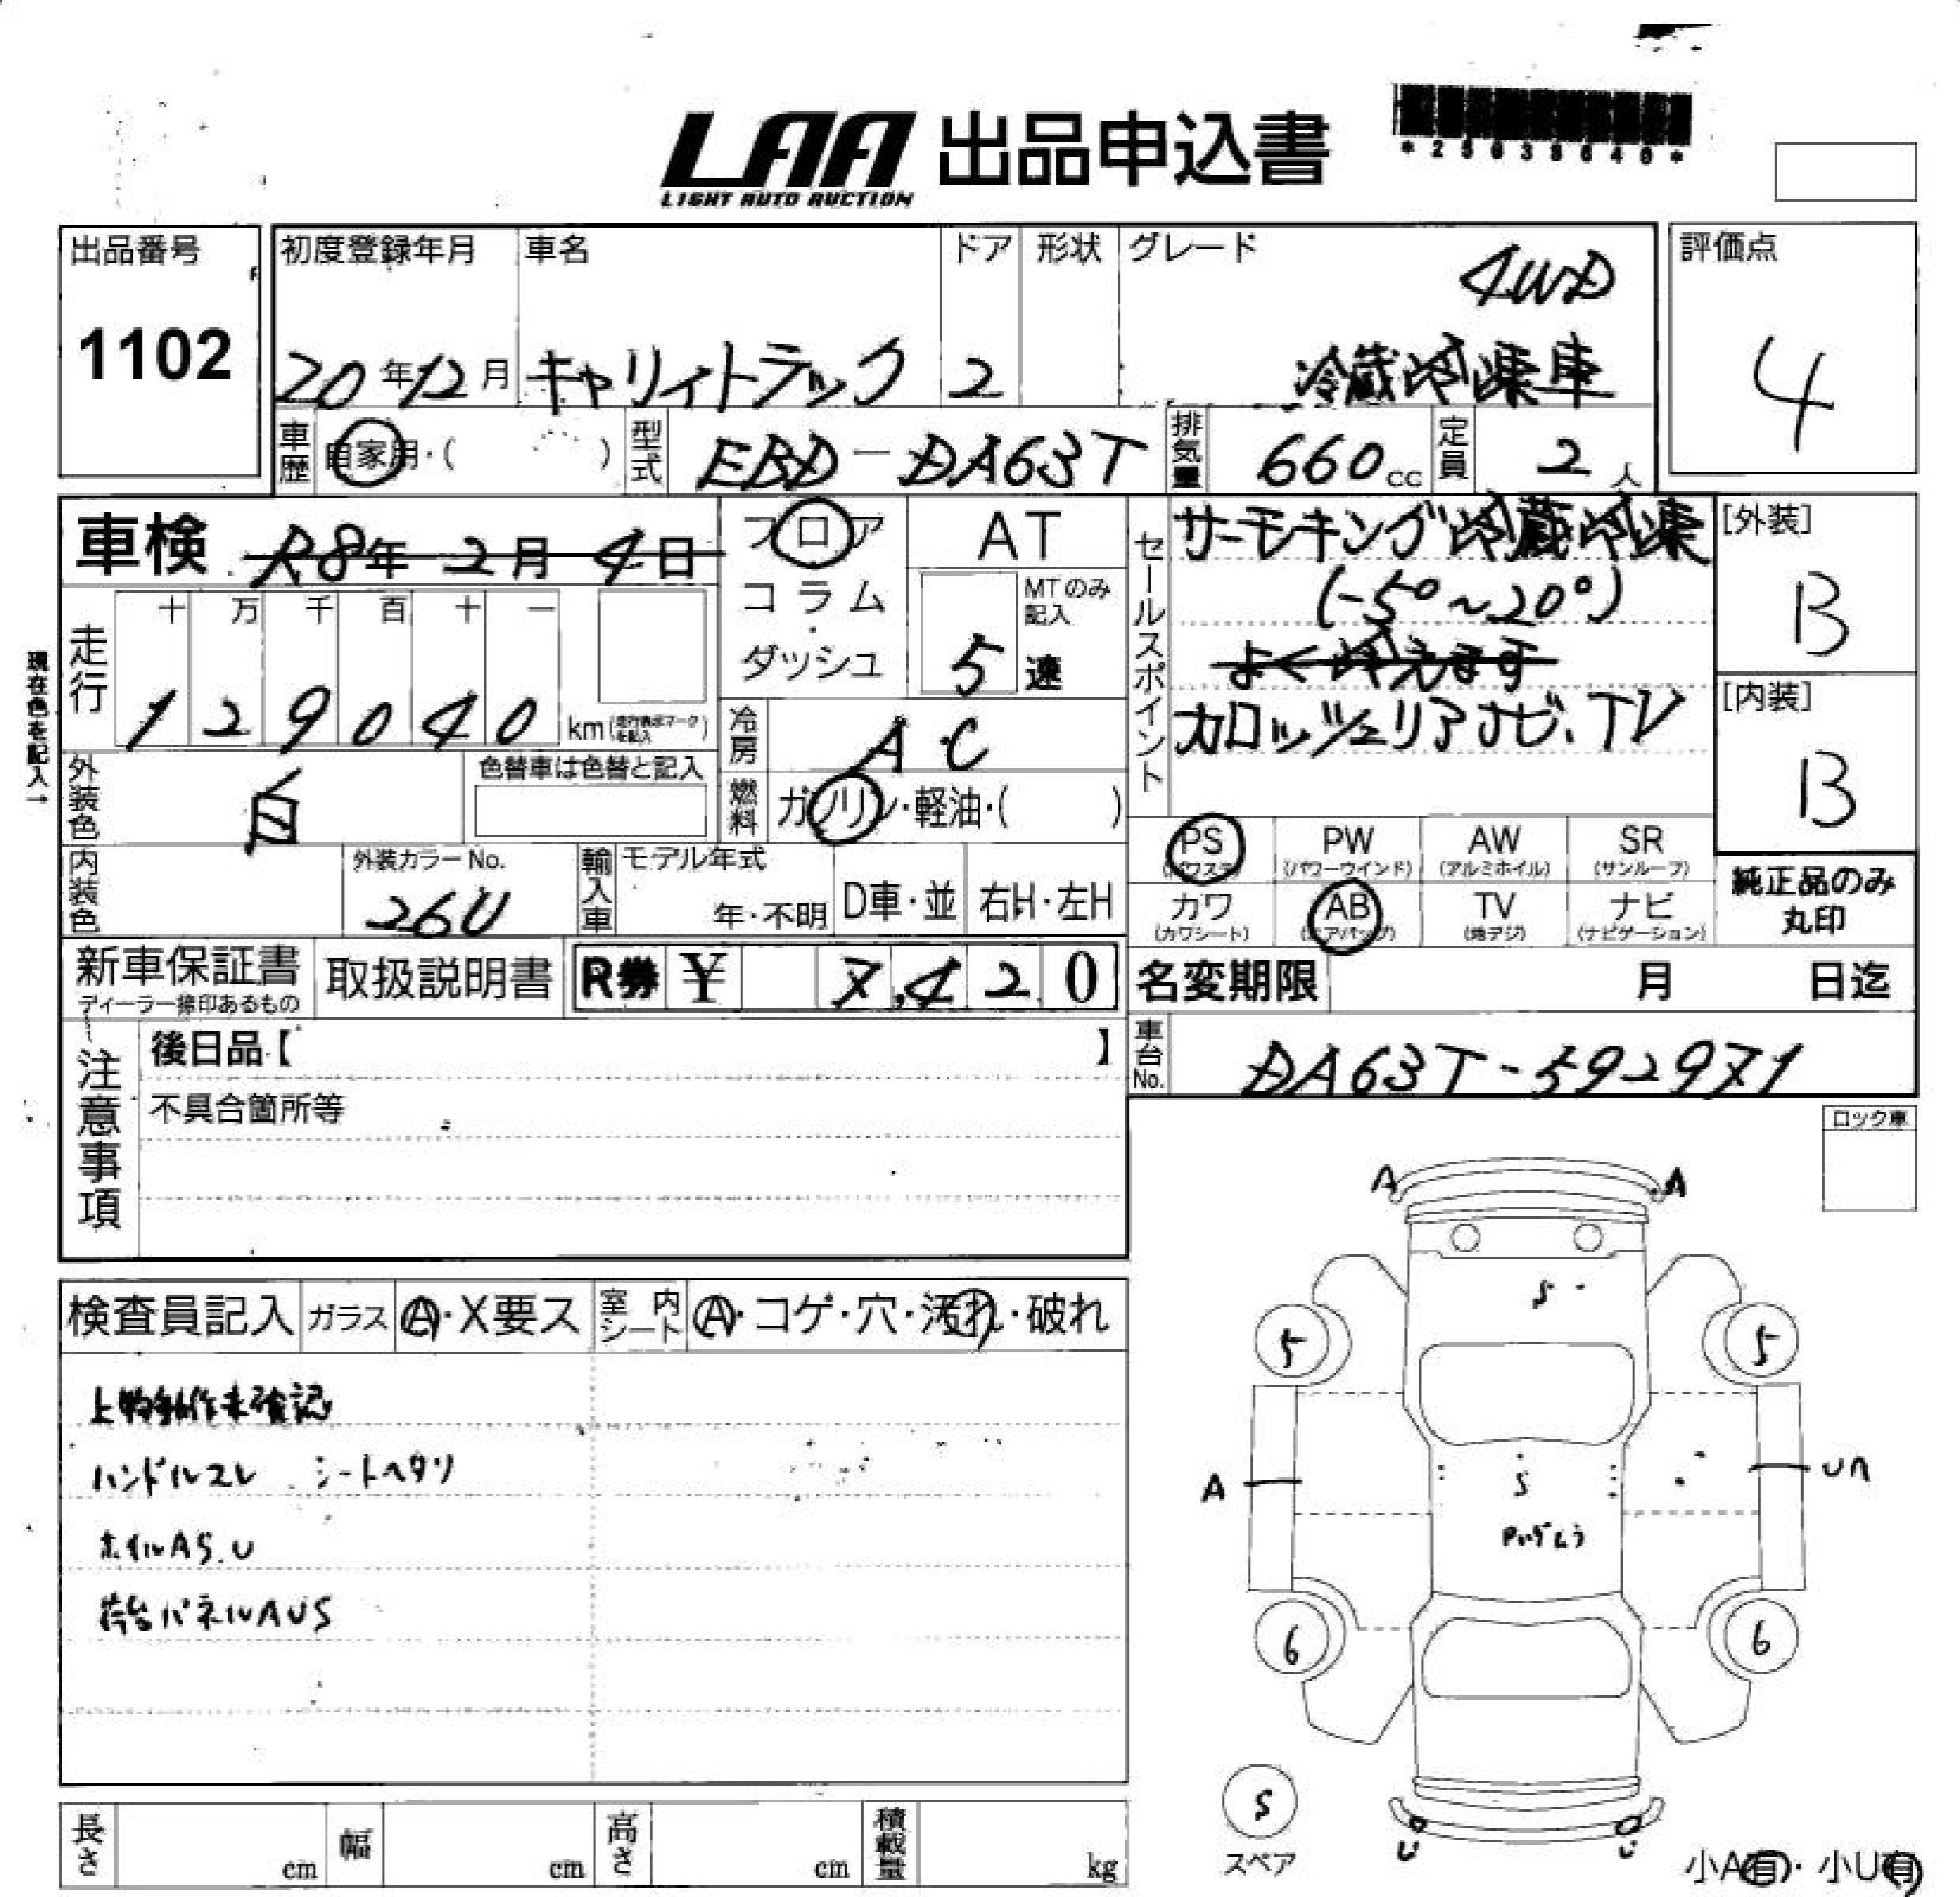 LAA 出品申込書
LIGHT AUTO AUCTION
*25039640*
出品番号
1102
初度登録年月 車名 ドア 形状 グレード
4WD
20年12月 キャリイトラック 2 冷蔵冷凍車
評価点
4
車歴 自家用・( ) 型式 EBD-DA63T 排気量 660cc 定員 2人
車検 R8年2月4日
フロア
コラム
・
ダッシュ
AT
MTのみ記入
5速
セールスポイント
サーモキング冷蔵冷凍
(-5°~20°)
よく冷えます
カロッツェリアナビ、TV
[外装]
B
[内装]
B
現在色を記入→
走行 十 万 千 百 十 一
129040 km(走行表示マークを記入)
冷房 AC
燃料 ガソリン・軽油・( )
外装色 白 色替車は色替と記入
内装色 外装カラーNo.
26U
輸入車 モデル年式
年・不明 D車・並 右H・左H
PS (パワステ) PW (パワーウインド) AW (アルミホイル) SR (サンルーフ)
カワ (カワシート) AB (エアバッグ) TV (地デジ) ナビ (ナビゲーション)
純正品のみ
丸印
新車保証書
ディーラー捺印あるもの
取扱説明書 R券 ¥ 7,420
名変期限 月 日迄
車台No. DA63T-592971
注意事項
後日品【 】
不具合箇所等
ロック車
検査員記入 ガラス A・X要ス 室内シート A・コゲ・穴・汚れ・破れ
上物動作未確認
ハンドルスレ シートヘタリ
ホイルAS.U
荷台パネルAUS
A A
S
5 5
A S UA
6 6
S
スペア
U U
小A有・小U有
長さ cm 幅 cm 高さ cm 積載量 kg